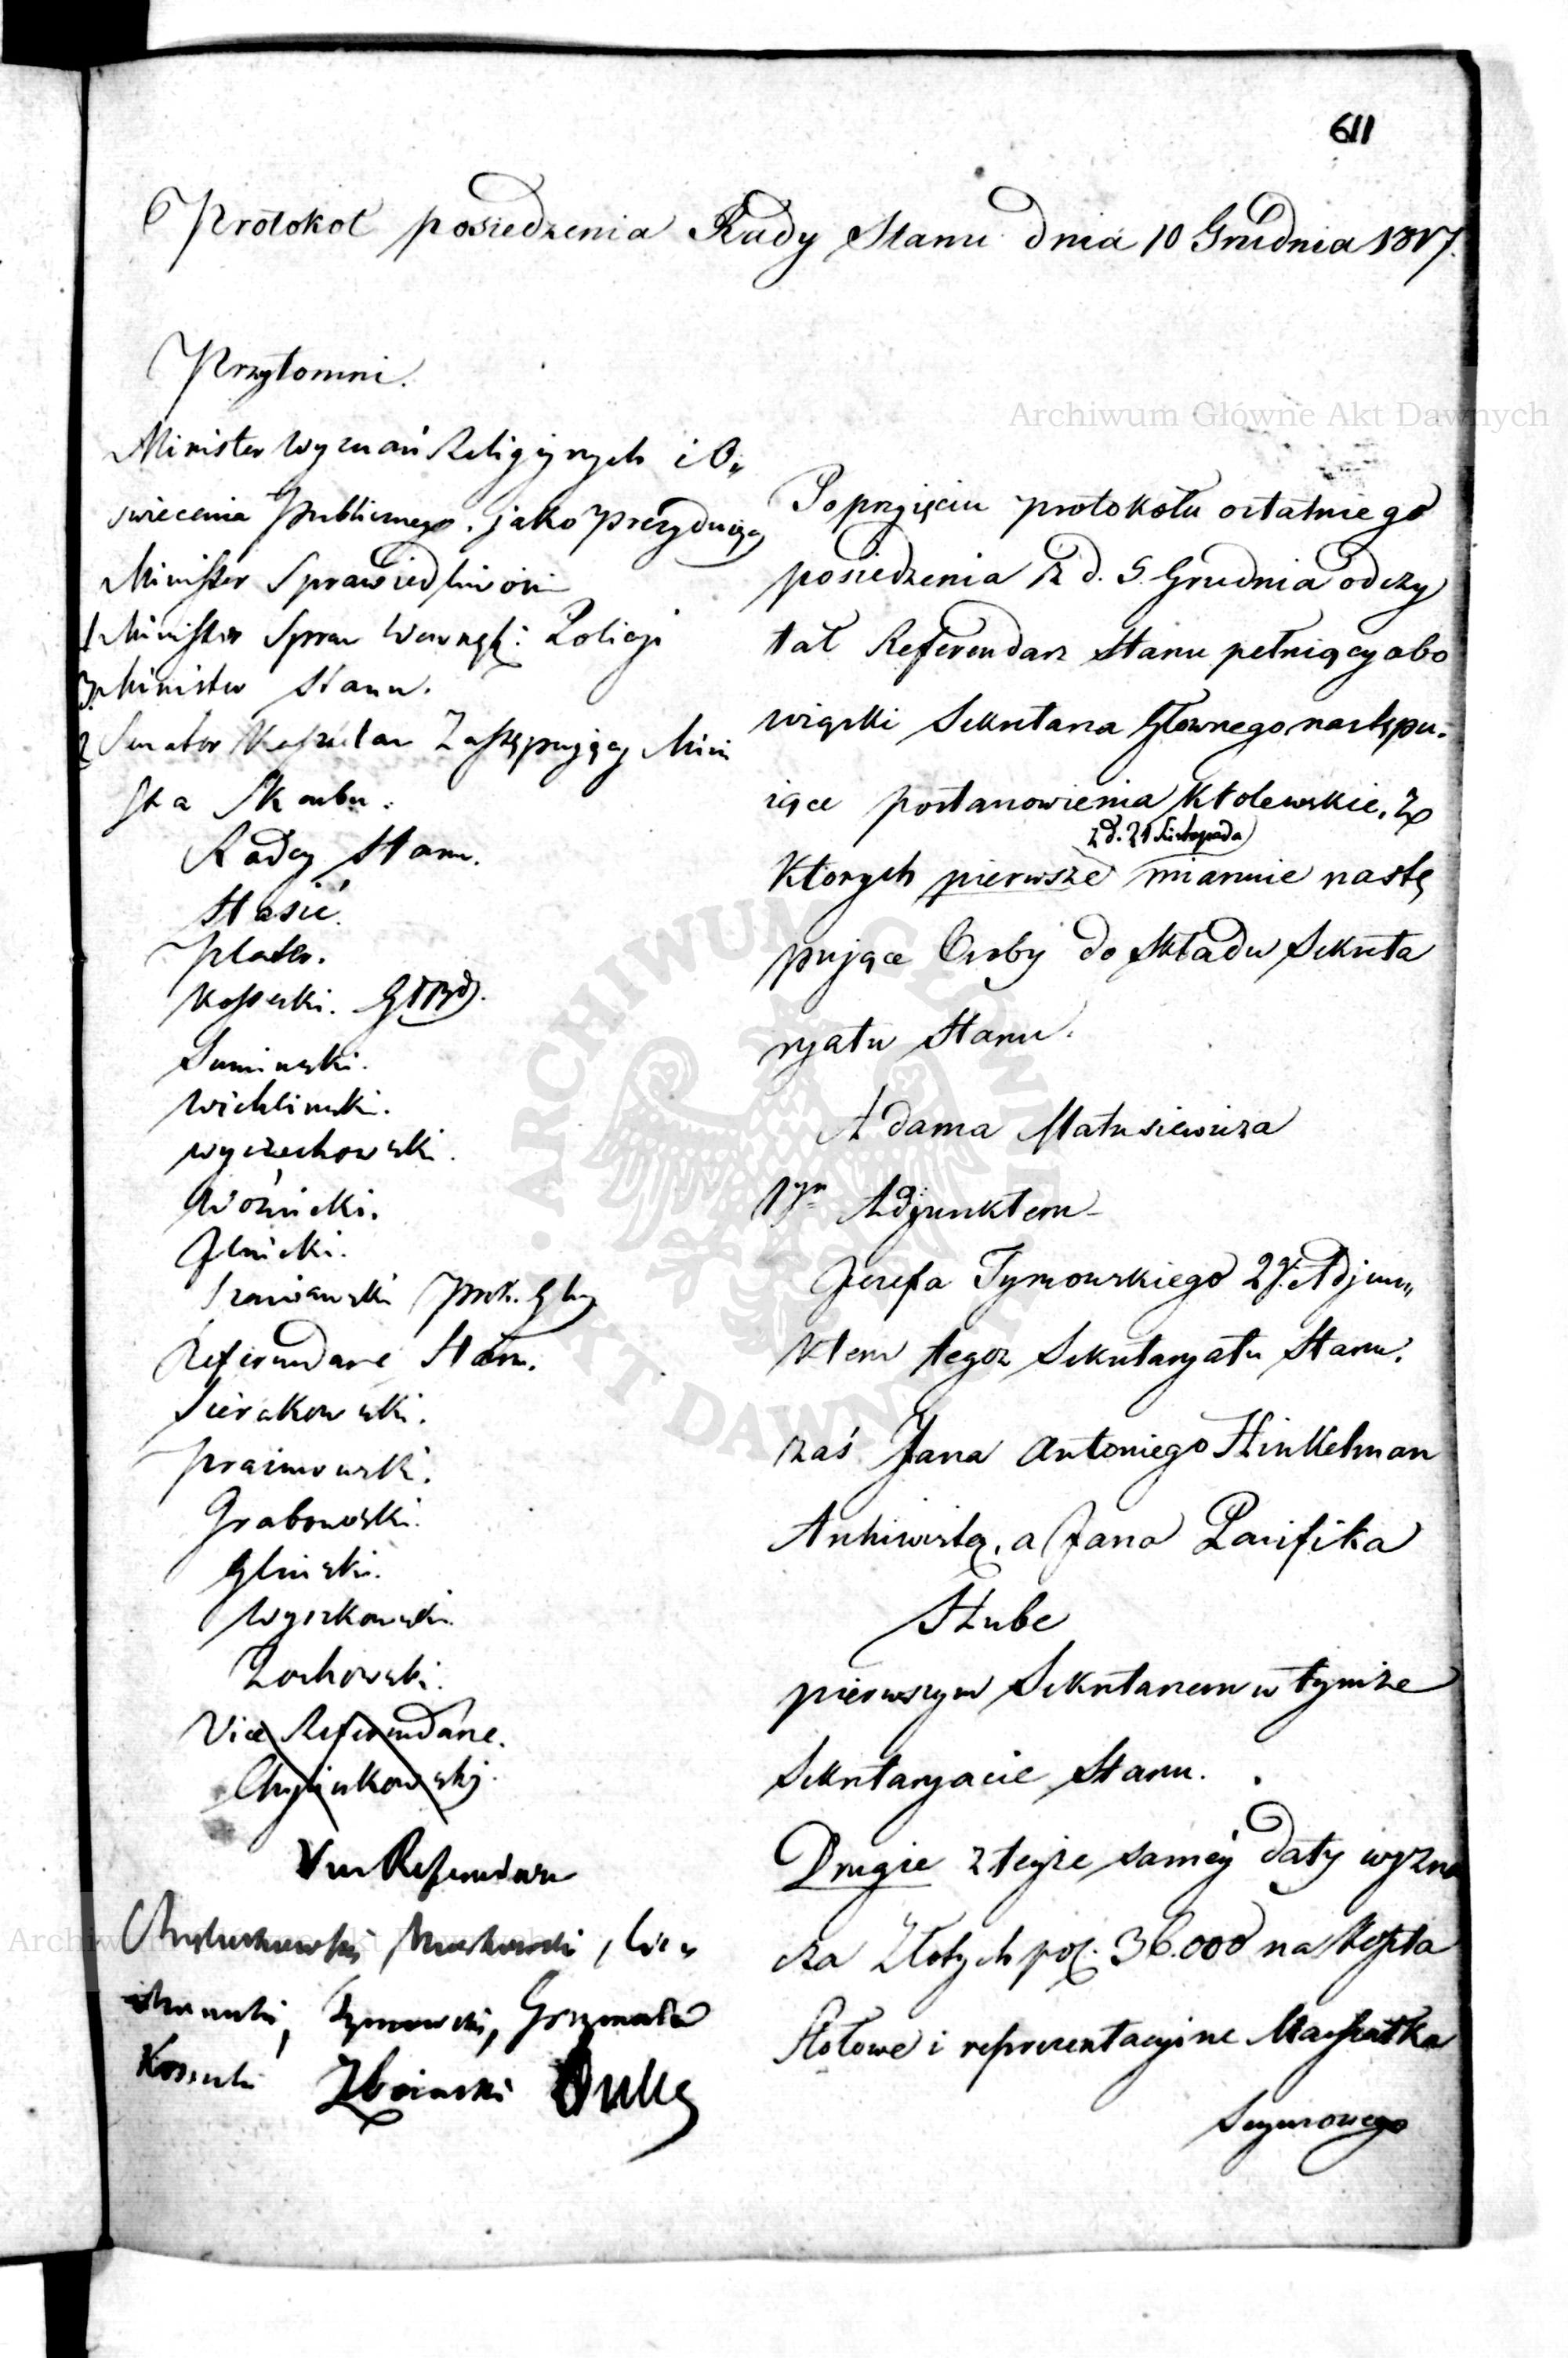 611
Protokoł posiedzenia Rady Stanu dnia 10 Grudnia 1817.
Przytomni.
Minister Wyznań Religijnych i O„
swiecenia Publicznego. jako Prezydujący
Minister Sprawiedliwości
1 Minister Spraw Wewnętr: Policji
3. Minister Stanu.
2 Senator Kasztelan Zastępujący Mini
stra Skarbu.
Radcy Stanu.
Stasic.
Plater.
Kossecki.
Sumiński.
Wichliński.
Wyczechowski.
Woźnicki.
Jlnicki.
Szaniawski Prok. Głny
Referendarze Stanu.
Sierakowski.
Praimowski.
Grabowski.
Gliński.
Wyszkowski.
Żochowski.
Vice Referendarze.
Vice Referendarze
Tymowski, Grzymała
Kossecki Zboiński
Po przyjęciu protokołu ostatniego
posiedzenia z d. 5. Grudnia odczy
tał Referendarz Stanu pełniący obo
wiązki Sekretarza Głównego nastepu„
iące postanowienia Królewskie, z
z d. 21 Listopada
Ktorych pierwsze mianuie nastę
pujące Osoby do Składu Sekreta
ryatu Stanu.
Adama Matusiewicza
1ym Adjunktem
Jozefa Tymowskiego 2g. Adjun„
ktem tegoz Sekretaryatu Stanu.
zaś Jana Antoniego Hinkelman
Archiwistą, a Jana Pacifika
Stube
pierwszym Sekretarzem w tymże
Sekretaryacie Stanu.
Drugie z teyże samey daty wyzna
cza Złotych pol. 36.000 na Koszta
Stołowe i reprezentacyine Marszałka
Seymowego
Archiwum Główne Akt Dawnych
ARCHIWUM GŁÓWNE AKT DAWNYCH